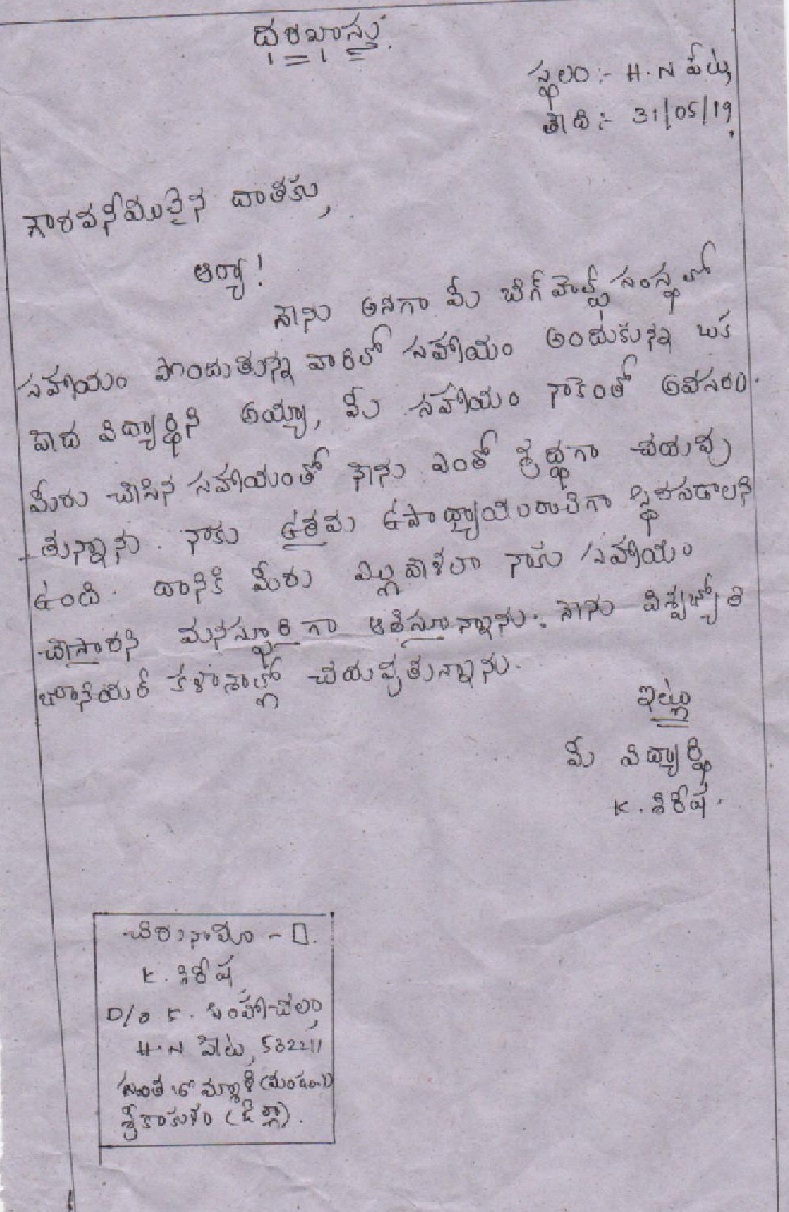 దరఖాస్తు.
స్థలం :- H.N పేట,
తేది :- 31/05/19,
గౌరవనీయులైన దాతకు,
ఆర్యా!
నేను అనగా మీ బిగ్ హెల్ప్ సంస్థలో
సహాయం పొందుతున్న వారిలో సహాయం అందుకున్న ఒక
పేద విద్యార్థిని అయ్యా, మీ సహాయం నాకెంతో అవసరం.
మీరు చేసిన సహాయంతో నేను ఎంతో శ్రద్ధగా చదువు
తున్నాను. నాకు ఉత్తమ ఉపాధ్యాయురాలిగా స్థిరపడాలని
ఉంది. దానికి మీరు ఎల్లవేళలా నాకు సహాయం
చేస్తారని మనస్ఫూర్తిగా ఆశిస్తున్నాను. నేను విశ్వజ్యోతి
జూనియర్ కళాశాల్లో చదువుతున్నాను.
ఇట్లు
మీ విద్యార్థి
K. శిరీష.
చిరునామా -
K. శిరీష,
D/o K. సింహాచలం,
H.N పేట, 532211
శ్రీకాకుళం (జిల్లా).